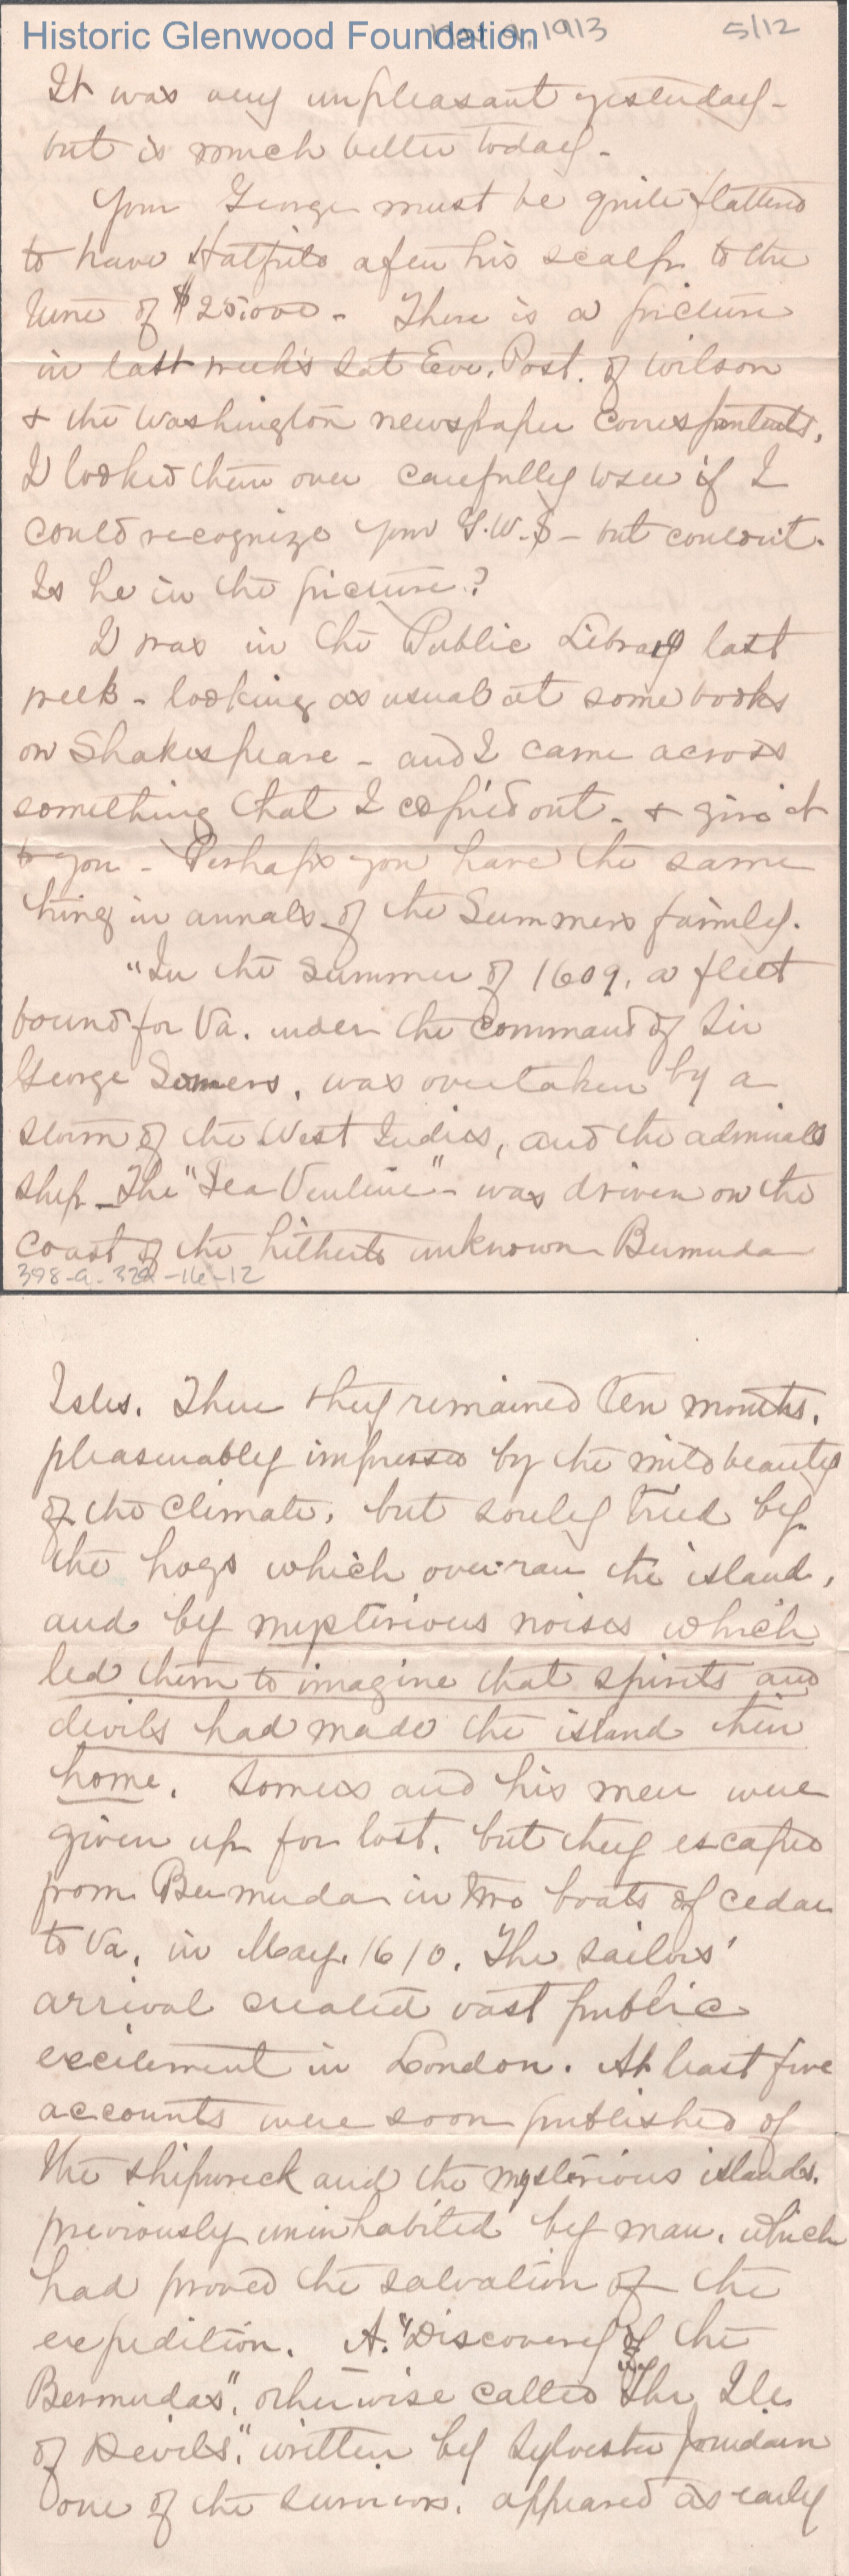 Historic Glenwood Foundation
1913
5/12
It was very unpleasant yesterday -
but is much better today -
Your George must be quite flattered
to have Hatfield after his scalp to the
tune of $25.000 - There is a picture
in last week's Sat Eve. Post. of Wilson
& the Washington newspaper correspondents,
I looked them over carefully to see if I
could recognize your G.W.S - but couldn't.
Is he in the picture?
I was in the Public Library last
week - looking as usual at some books
on Shakespeare - and I came across
something that I copied out - & give it
to you - Perhaps you have the same
thing in annals of the Summers family.
"In the summer of 1609, a fleet
bound for Va. under the command of Sir
George Somers, was overtaken by a
storm of the West Indies, and the admirals
ship - The "Sea Venture" - was driven on the
coast of the hitherto unknown Bermuda
398-a-322-16-12
Isles. There they remained ten months,
pleasurably impressed by the mild beauty
of the climate, but sorely tried by
the hogs which over-ran the island,
and by mysterious noises which
led them to imagine that spirits and
devils had made the island their
home. Somers and his men were
given up for lost, but they escaped
from Bermuda in two boats of cedar
to Va. in May. 1610. The sailors'
arrival created vast public
excitement in London. At least five
accounts were soon published of
the shipwreck and the mysterious islands,
previously uninhabited by man, which
had proved the salvation of the
expedition. A. "Discovery of the
Bermudas", otherwise called "The Ile
of Devils", written by Sylvester Jourdain
one of the survivors, appeared as early